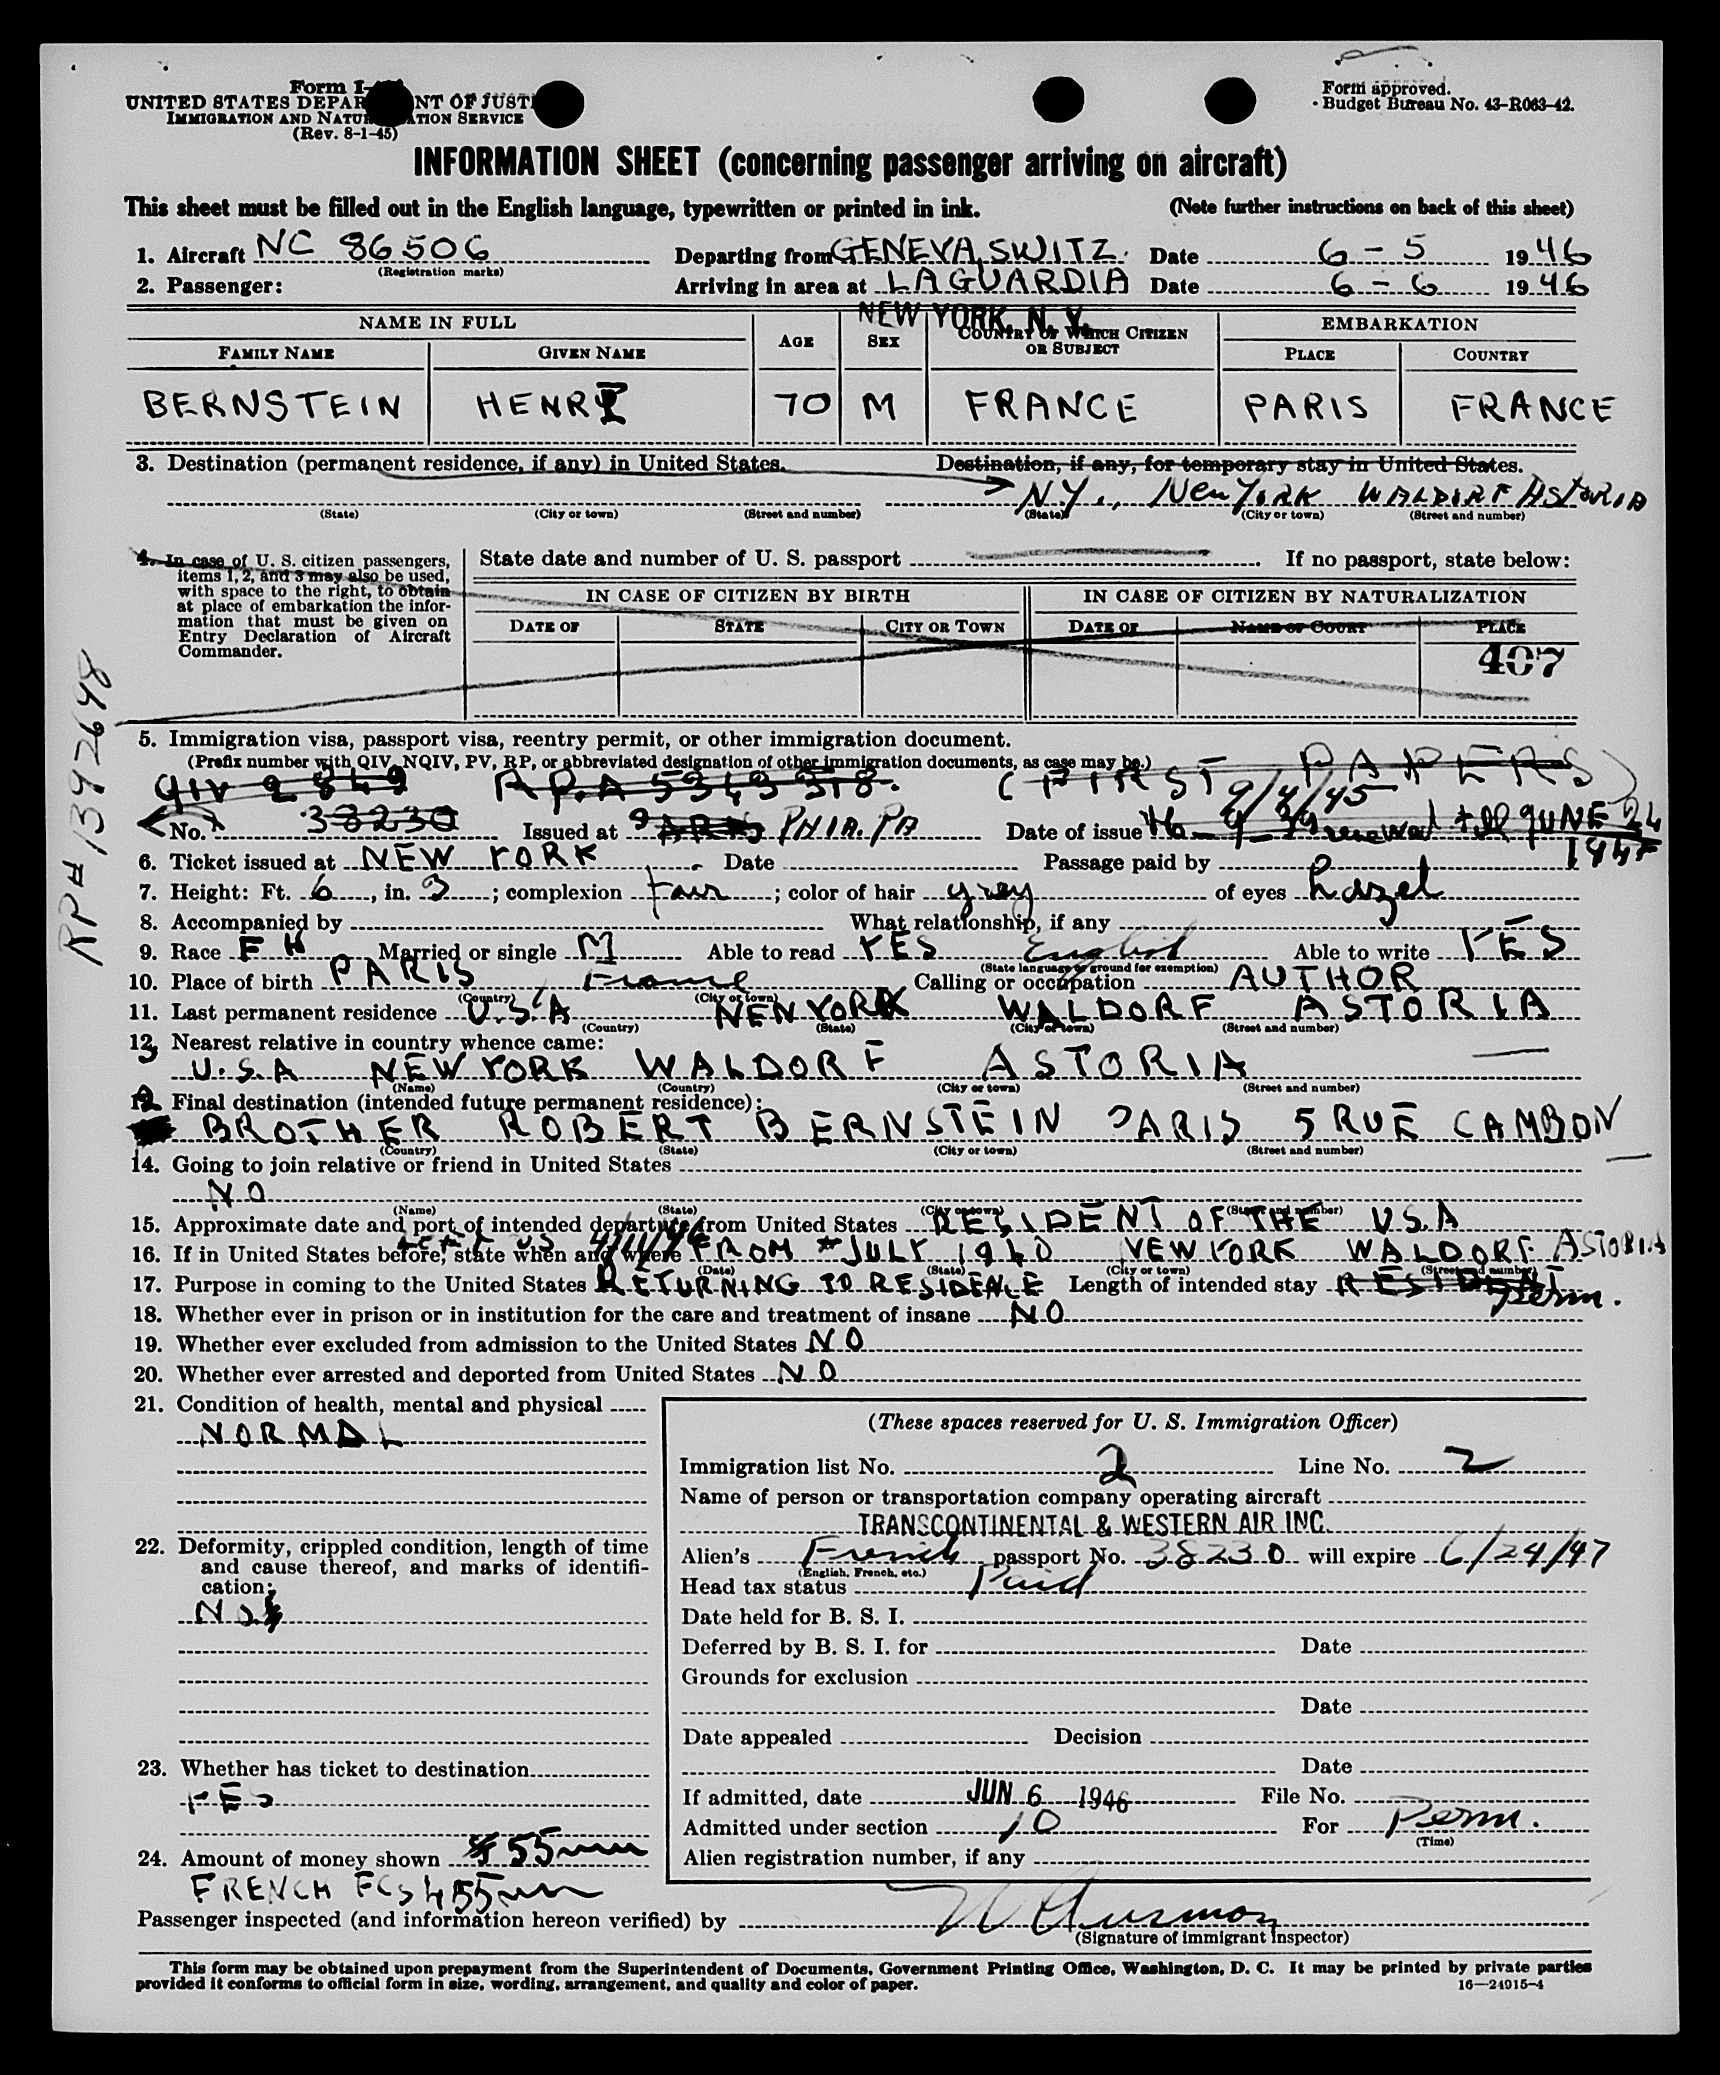 Form I-
Form approved.
UNITED STATES DEPAR NT OF JUSTI
Budget Bureau No. 43-R063-42.
IMMIGRATION AND NATUR ATION SERVICE
(Rev. 8-1-45)
INFORMATION SHEET (concerning passenger arriving on aircraft)
This sheet must be filled out in the English language, typewritten or printed in ink. (Note further instructions on back of this sheet)
1. Aircraft NC 86506 Departing from GENEVA, SWITZ. Date 6 - 5 1946
(Registration marks)
2. Passenger: Arriving in area at LAGUARDIA Date 6 - 6 1946
NEW YORK, N. Y.
NAME IN FULL AGE SEX COUNTRY OF WHICH CITIZEN OR SUBJECT EMBARKATION
FAMILY NAME GIVEN NAME PLACE COUNTRY
BERNSTEIN HENRY 70 M FRANCE PARIS FRANCE
3. Destination (permanent residence, if any) in United States. Destination, if any, for temporary stay in United States.
N.Y., New York WALDORF ASTORIA
(State) (City or town) (Street and number) (State) (City or town) (Street and number)
4. In case of U. S. citizen passengers, items 1, 2, and 3 may also be used, with space to the right, to obtain at place of embarkation the information that must be given on Entry Declaration of Aircraft Commander.
State date and number of U. S. passport If no passport, state below:
IN CASE OF CITIZEN BY BIRTH IN CASE OF CITIZEN BY NATURALIZATION
DATE OF STATE CITY OR TOWN DATE OF NAME OF COURT PLACE
407
RP# 1392648
5. Immigration visa, passport visa, reentry permit, or other immigration document.
(Prefix number with QIV, NQIV, PV, RP, or abbreviated designation of other immigration documents, as case may be.)
QIV 2849 (FIRST PAPERS)
9/4/45
No. 38230 Issued at PHIA. PA Date of issue renewed till JUNE 24
1947
6. Ticket issued at NEW YORK Date Passage paid by
7. Height: Ft. 6, in. 3; complexion fair; color of hair grey of eyes hazel
8. Accompanied by What relationship, if any
9. Race F H Married or single M Able to read YES English Able to write YES
(State language or ground for exemption)
10. Place of birth PARIS France Calling or occupation AUTHOR
(Country) (City or town)
11. Last permanent residence U.S.A NEW YORK WALDORF ASTORIA
(Country) (State) (City or town) (Street and number)
12. Nearest relative in country whence came:
U.S.A NEW YORK WALDORF ASTORIA
(Name) (Country) (City or town) (Street and number)
Final destination (intended future permanent residence):
BROTHER ROBERT BERNSTEIN PARIS 5 RUE CAMBON
(Country) (State) (City or town) (Street and number)
14. Going to join relative or friend in United States
NO
(Name) (State) (City or town) (Street and number)
15. Approximate date and port of intended departure from United States RESIDENT OF THE U.S.A
left US 4/11/46
16. If in United States before, state when and where FROM JULY 1940 NEW YORK WALDORF ASTORIA
(Date) (State) (City or town) (Street and number)
17. Purpose in coming to the United States RETURNING TO RESIDENCE Length of intended stay RESIDENT
Perm.
18. Whether ever in prison or in institution for the care and treatment of insane NO
19. Whether ever excluded from admission to the United States NO
20. Whether ever arrested and deported from United States NO
21. Condition of health, mental and physical
NORMAL
22. Deformity, crippled condition, length of time and cause thereof, and marks of identification:
NO
23. Whether has ticket to destination
YES
24. Amount of money shown $ 55
FRENCH FCS 455
(These spaces reserved for U. S. Immigration Officer)
Immigration list No. 2 Line No. 2
Name of person or transportation company operating aircraft
TRANSCONTINENTAL & WESTERN AIR INC.
Alien's French passport No. 38230 will expire 6/24/47
(English, French, etc.)
Head tax status Paid
Date held for B. S. I.
Deferred by B. S. I. for Date
Grounds for exclusion
Date
Date appealed Decision
Date
If admitted, date JUN 6 1946 File No.
Admitted under section 10 For Perm.
(Time)
Alien registration number, if any
Passenger inspected (and information hereon verified) by
(Signature of immigrant inspector)
This form may be obtained upon prepayment from the Superintendent of Documents, Government Printing Office, Washington, D. C. It may be printed by private parties
provided it conforms to official form in size, wording, arrangement, and quality and color of paper. 16—24915-4